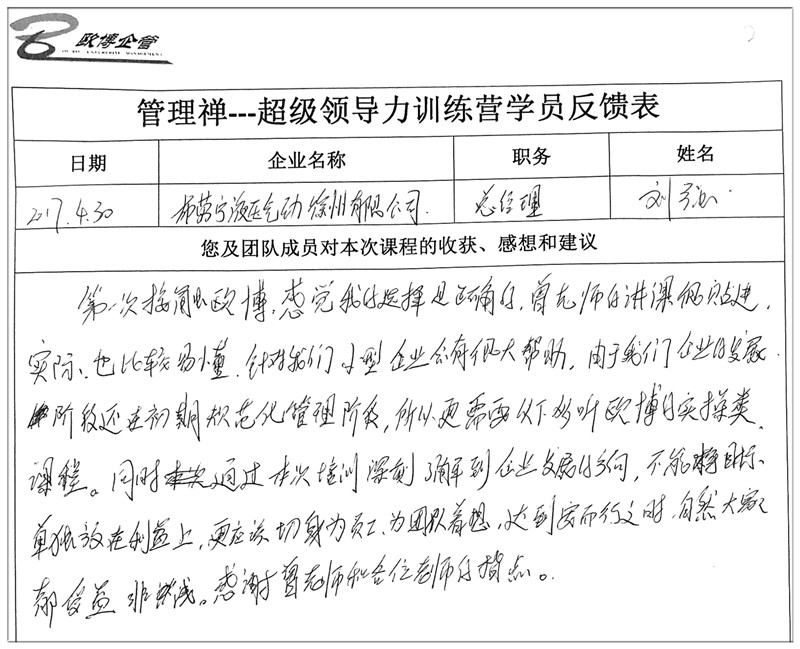 欧博企管
管理禅---超级领导力训练营学员反馈表
日期 企业名称 职务 姓名
2017.4.30 希劳宁液压气动徐州有限公司. 总经理 刘
您及团队成员对本次课程的收获、感想和建议
第一次接触欧博,感觉我的选择是正确的,曾老师的讲课很贴近
实际、也比较易懂.针对我们小型企业会有很大帮助.由于我们企业的发展
阶段还在初期规范化管理阶段,所以更需要以下多听欧博的实操类
课程。同时通过本次培训深刻了解到企业发展的方向,不能将目标
单独放在利益上,更应该切身为员工、为团队着想,达到客而行之时,自然大家
都受益非浅。感谢曾老师和各位老师的指点。